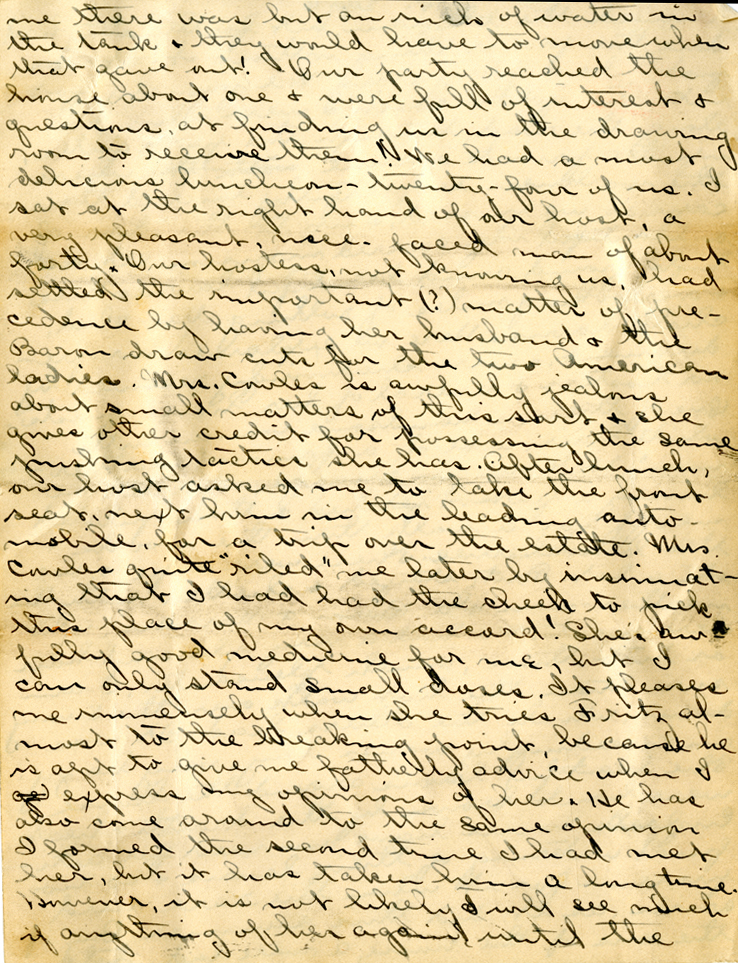 me there was but an inch of water in
the tank & they would have to move when
that gave out! Our party reached the
house about one & were full of interest &
questions, at finding us in the drawing
room to receive them! We had a most
delicious luncheon - twenty-four of us. I
sat at the right hand of our host, a
very pleasant, nice-faced man of about
forty. Our hostess, not knowing us, had
settled the important (?) matter of pre-
cedence by having her husband & the
Baron draw cuts for the two American
ladies. Mrs. Cowles is awfully jealous
about small matters of this sort & she
gives other credit for possessing the same
pushing tactics she has. After lunch,
our host asked me to take the front
seat, next him in the leading auto-
mobile, for a trip over the estate. Mrs.
Cowles quite "riled" me later by insinuat-
ing that I had had the cheek to pick
this place of my own accord! She's aw-
fully good medicine for me, but I
can only stand small doses. It pleases
me immensely when she tries Fritz al-
most to the breaking point, because he
is apt to give me fatherly advice when I
express my opinions of her. He has
also come around to the same opinion
I formed the second time I had met
her, but it has taken him a long time.
However, it is not likely I will see much
if anything of her again until the